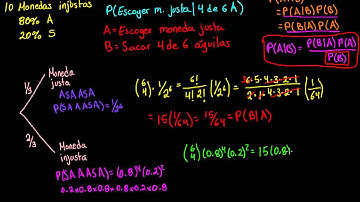 10 Monedas injustas
80% A
20% S
P(Escoger M. justa | 4 de 6 A)
A = Escoger moneda justa
B = Sacar 4 de 6 águilas
= P(B|A) P(A)
P(A|B) = P(B|A) P(A) / P(B)
1/3
Moneda justa
ASAASA
P(SAAASA) = 1/2⁶
2/3
Moneda injusta
P(SAAASA) = (0.8)⁴(0.2)²
0.2x0.8x0.8x0.8x0.2x0.8
(6 4) · 1/2⁶ = 6!/4!2! (1/2⁶) = 6·5·4·3·2·1 / 2·1·4·3·2·1 (1/64)
= 15(1/64) = 15/64 = P(B|A)
(6 4)(0.8)⁴(0.2)² = 15(0.8)